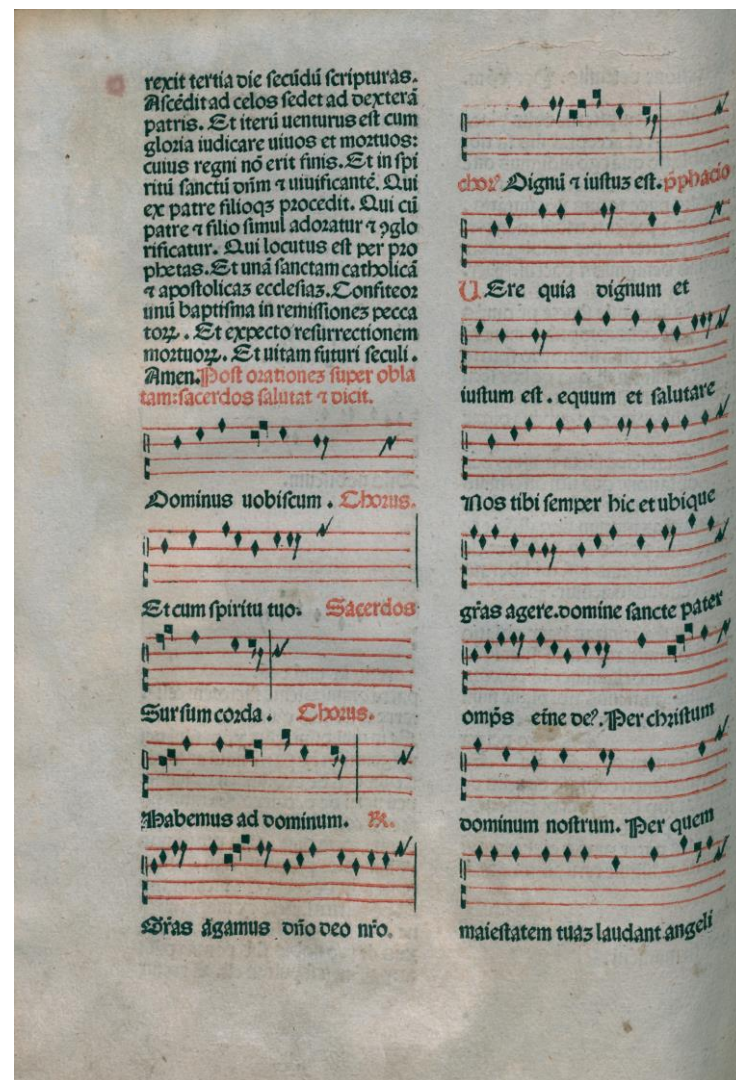 rexit tertia die secūdū scripturas.
Ascēdit ad celos sedet ad dexterā
patris. Et iterū uenturus est cum
gloria iudicare uiuos et mortuos:
cuius regni nō erit finis. Et in spi
ritū sanctū dn̄m ⁊ uiuificantē. Qui
ex patre filioqꝫ procedit. Qui cū
patre ⁊ filio simul adoratur ⁊ ꝯglo
rificatur. Qui locutus est per pro
phetas. Et unā sanctam catholicā
⁊ apostolicaꝫ ecclesiaꝫ. Confiteor
unū baptisma in remissioneꝫ pecca
toꝝ. Et expecto resurrectionem
mortuoꝝ. Et uitam futuri seculi.
Amen. Post orationeꝫ super obla
tam: sacerdos salutat ⁊ dicit.
Dominus uobiscum. Chorus.
Et cum spiritu tuo. Sacerdos
Sursum corda. Chorus.
Habemus ad dominum. ℟.
Gr̄as agamus dn̄o deo nr̄o.
chorꝰ Dignū ⁊ iustuꝫ est. p̄phacio
Uere quia dignum et
iustum est. equum et salutare
Nos tibi semper hic et ubique
gr̄as agere. domine sancte pater
omp̄s et̄ne deꝰ. Per christum
dominum nostrum. Per quem
maiestatem tuaꝫ laudant angeli